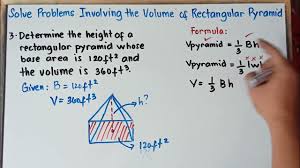 Solve Problems Involving the Volume of Rectangular Pyramid
3. Determine the height of a
rectangular pyramid whose
base area is 120ft² and
the volume is 360ft³.
Given: B = 120ft²
V = 360ft³
h?
120ft²
Formula:
Vpyramid = 1/3 Bh
Vpyramid = 1/3 lwh
V = 1/3 Bh